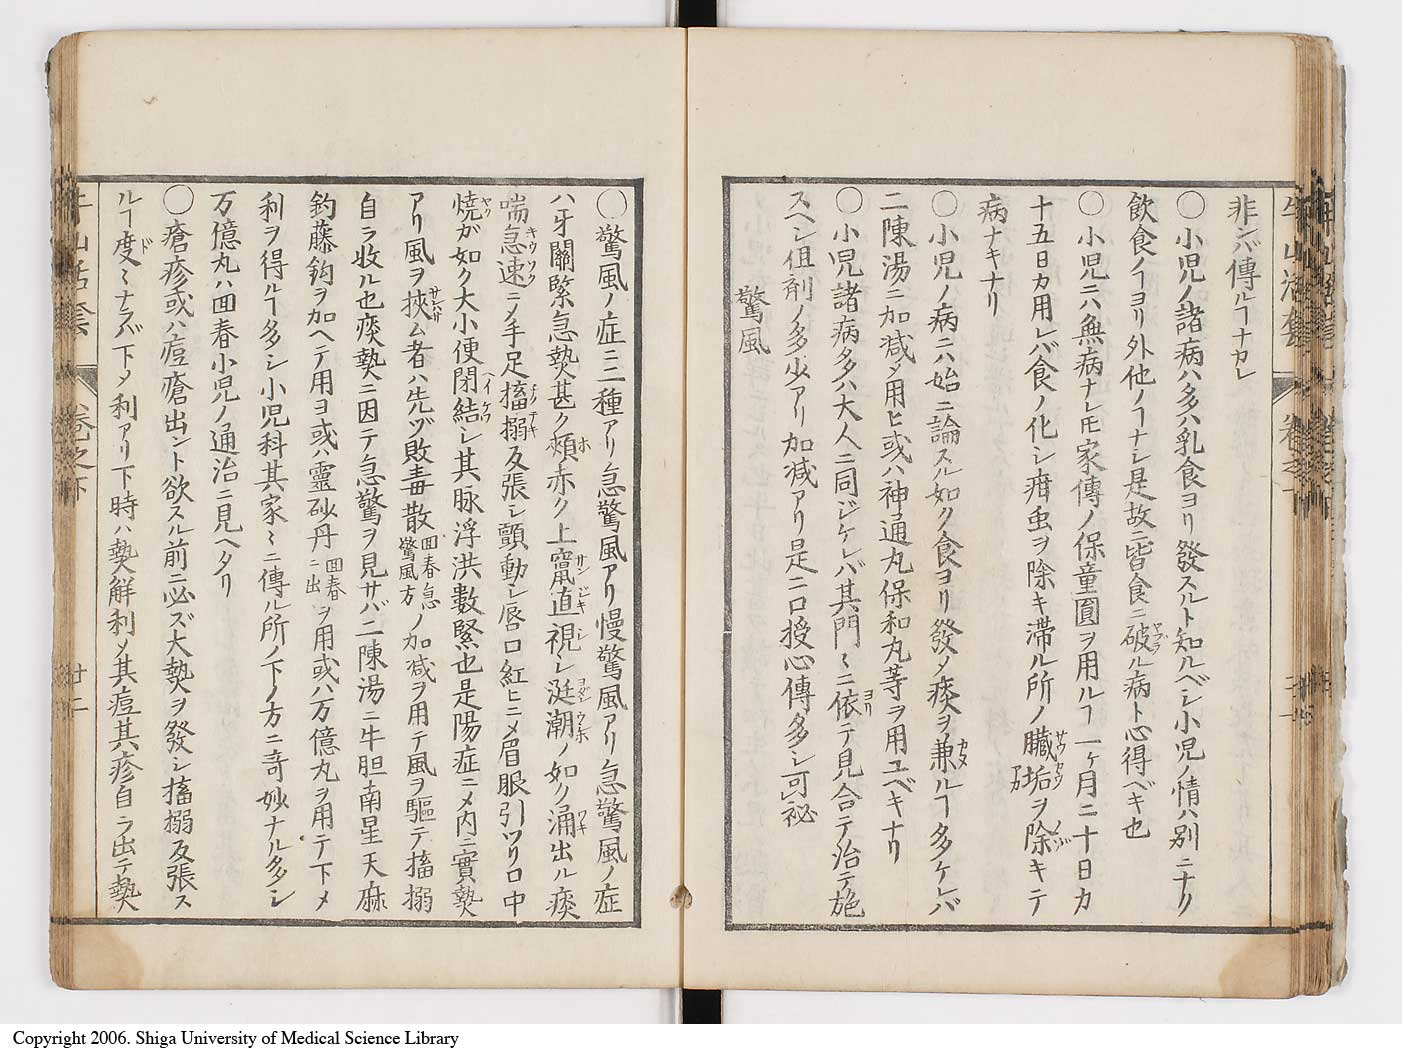 非ンバ傳ルヿナカレ
〇小児ノ諸病ハ多ハ乳食ヨリ發スルト知ルベシ小児ノ情ハ別ニナリ
飲食ノヿヨリ外他ノヿナシ是故ニ皆食ニ破ル病ト心得ベキ也
〇小児ニハ無病ナレ𪜈家傳ノ保童圓ヲ用ルヿ一ヶ月ニ十日カ
十五日カ用レバ食ノ化シ疳虫ヲ除キ滞ル所ノ臓垢ヲ除キテ
病ナキナリ
〇小児ノ病ニハ始ニ論スル如ク食ヨリ發メ痰ヲ兼ルヿ多ケレバ
二陳湯ニ加減メ用ヒ或ハ神通丸保和丸等ヲ用ユベキナリ
〇小児諸病多ハ大人ニ同ジケレバ其門〻ニ依テ見合テ治テ施
スベシ但剤ノ多少アリ加減アリ是ニ口授心傳多シ可祕
驚風
〇驚風ノ症ニ二種アリ急驚風アリ慢驚風アリ急驚風ノ症
ハ牙關緊急𤍠甚ク頰赤ク上竄直視シ涎潮ノ如ク涌出ル痰
喘急速ニノ手足搐搦反張シ顫動シ唇口紅ヒニメ眉眼引ツリ口中
燒ガ如ク大小便閉結シ其脉浮洪數緊也是陽症ニメ内ニ實𤍠
アリ風ヲ挾ム者ハ先ヅ敗毒散回春急驚風方ノ加減ヲ用テ風ヲ驅テ搐搦
自ラ收ル也痰𤍠ニ因テ急驚ヲ見サバ二陳湯ニ牛胆南星天麻
釣藤鈎ヲ加ヘテ用ヨ或ハ靈砂丹回春ニ出ヲ用或ハ万億丸ヲ用テ下メ
利ヲ得ルヿ多シ小児科其家〻ニ傳ル所ノ下ノ方ニ奇妙ナル多シ
万億丸ハ回春小児ノ通治ニ見ヘタリ
〇瘡疹或ハ痘瘡出ント欲スル前ニ必ズ大𤍠ヲ發シ搐搦反張ス
ルヿ度〻ナラバ下メ利アリ下時ハ𤍠解利メ其痘其疹自ラ出テ𤍠
牛山活套　卷之下　廿二
Copyright 2006. Shiga University of Medical Science Library